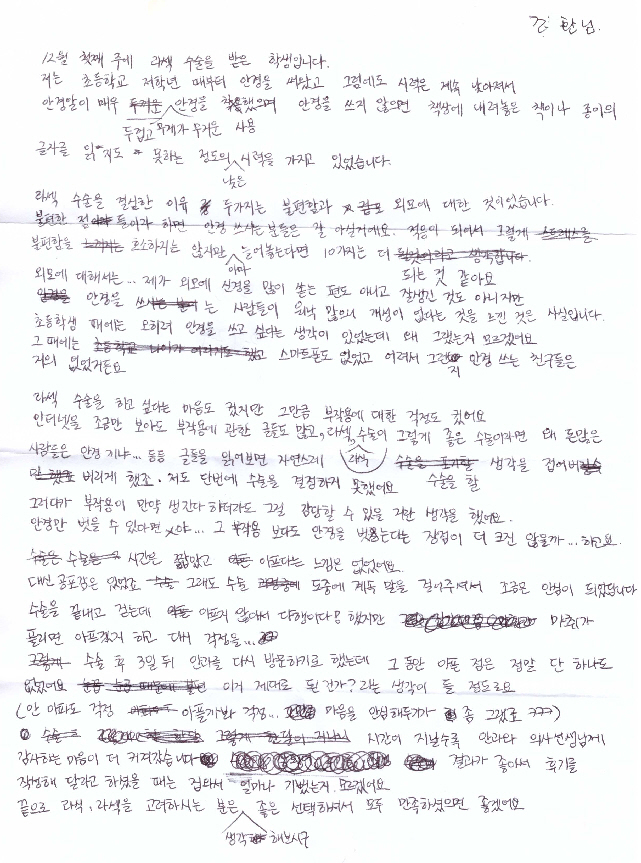 건 한님.
12월 첫째 주에 라섹 수술을 받은 학생입니다.
저는 초등학교 저학년 때부터 안경을 써왔고 그럼에도 시력은 계속 낮아져서
안경알이 매우 두꺼운 안경을 착용했으며 안경을 쓰지 않으면 책상에 내려놓은 책이나 종이의
두껍고 무게가 무거운 사용
글자를 읽지도 못하는 정도의 시력을 가지고 있었습니다.
낮은
라섹 수술을 결심한 이유 두가지는 불편함과 외모에 대한 것이었습니다.
불편한 점들이라 하면 안경 쓰시는 분들은 잘 아실거에요. 적응이 되어서 그렇게 스트레스를
불편함을 느끼지는 호소하지는 않지만 늘어놓는다면 10가지는 더
아마 되는 것 같아요
외모에 대해서는... 제가 외모에 신경을 많이 쓰는 편도 아니고 잘생긴 것도 아니지만
안경을 안경을 쓰는 사람들이 워낙 많으니 개성이 없다는 것을 느낀 것은 사실입니다.
초등학생 때에는 오히려 안경을 쓰고 싶다는 생각이 있었는데 왜 그랬는지 모르겠어요
그 때에는 초등학교 나이가 어리기도 했고 스마트폰도 없었고 어려서 그런지 안경 쓰는 친구들은
거의 없었거든요
라섹 수술을 하고 싶다는 마음도 컸지만 그만큼 부작용에 대한 걱정도 컸어요
인터넷을 조금만 보아도 부작용에 관한 글들도 많고, 라섹, 수술이 그렇게 좋은 수술이라면 왜 돈많은
사람들은 안경 끼냐... 등등 글들을 읽어보면 자연스레 수술을 포기할 생각을 접어
라식
버리게 했죠. 저도 단번에 수술을 결정하지 못했어요 수술을 할
그러다가 부작용이 만약 생긴다 하더라도 그걸 감당할 수 있을 거란 생각을 했어요.
안경만 벗을 수 있다면야... 그 부작용 보다도 안경을 벗는다는 장점이 더 크진 않을까... 하고요.
수술은 수술은 시간은 짧았고 아프다는 느낌은 없었어요.
대신 공포감은 있었죠 수술 그래도 수술 도중에 계속 말을 걸어주셔서 조금은 안심이 되었답니다
수술을 끝내고 걷는데 아프지 않아서 다행이다 했지만 마취가
풀리면 아프겠지 하고 대비 걱정을...
그렇게 수술 후 3일 뒤 안과를 다시 방문하기로 했는데 그 동안 아픈 점은 정말 단 하나도
없었어요 이거 제대로 된건가? 라는 생각이 들 정도로요
(안 아파도 걱정 아플까봐 걱정... 마음을 안심해두기가 좀 그랬죠 ㅋㅋㅋ)
수술 시간이 지날수록 안과와 의사선생님께
감사하는 마음이 더 커져갔습니다 결과가 좋아서 후기를
작성해 달라고 하셨을 때는 겁와서 얼마나 기뻤는지 모르겠어요
끝으로 라식, 라섹을 고려하시는 분은 좋은 선택하셔서 모두 만족하셨으면 좋겠어요
생각 해보시구